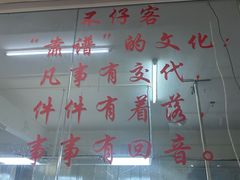 仔客
“靠谱”的文化：
凡事有交代，
件件有着落，
事事有回音。